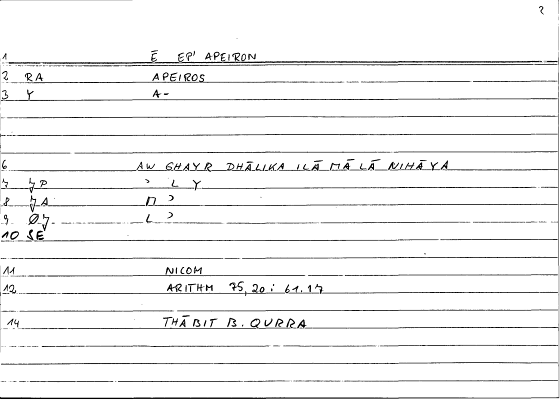 2
1 Ē EP' APEIRON
2 RA APEIROS
3 Y A-
6 AW GHAYR DHĀLIKA ILĀ MĀ LĀ NIHĀYA
7 P ʾ L Y
8 A M ʾ
9 Ø L ʾ
10 SE
11 NICOM
12 ARITHM 75,20 : 61.17
14 THĀBIT B. QURRA